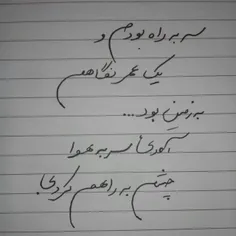 سر به راه بودم و
یک عمر نگاهم
به زمین بود...
آمدی سر به هوا
چشم به راهم کردی!